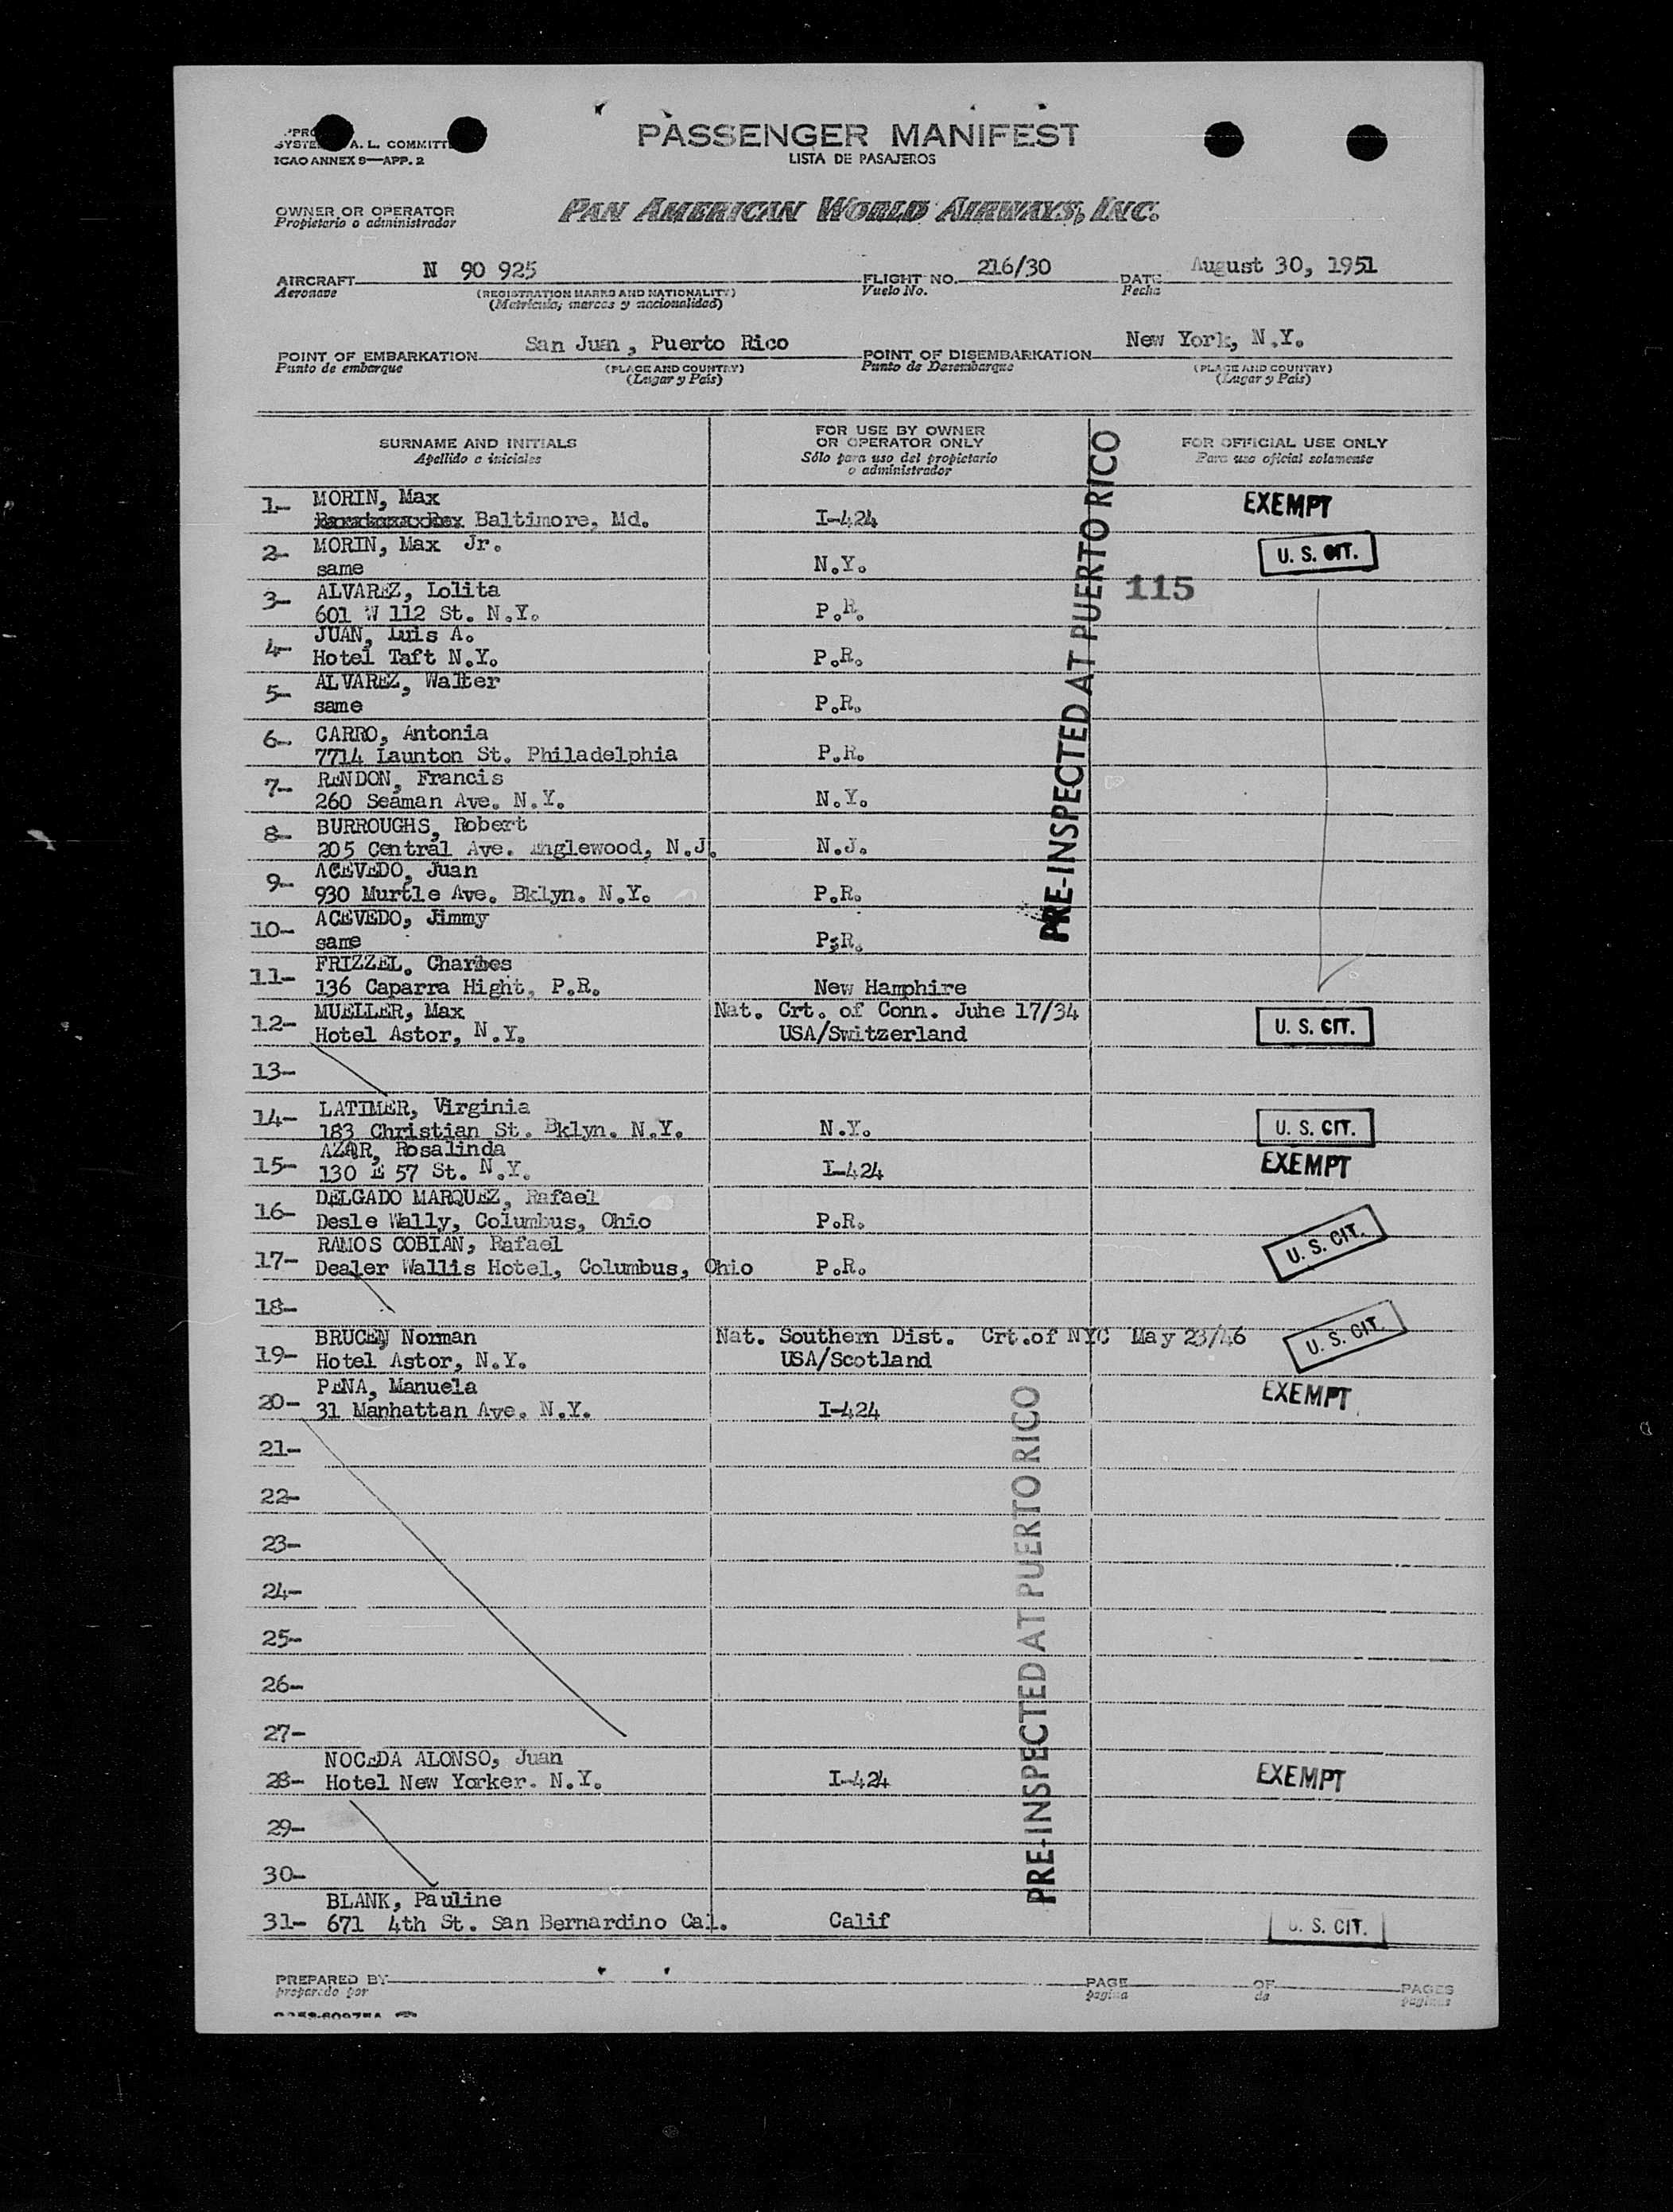 PASSENGER MANIFEST
LISTA DE PASAJEROS
A. L. COMMITT
ICAO ANNEX 9—APP. 2
OWNER OR OPERATOR
Propietario o administrador
PAN AMERICAN WORLD AIRWAYS, INC.
AIRCRAFT N 90 925 FLIGHT NO. 216/30 DATE August 30, 1951
Aeronave (REGISTRATION MARKS AND NATIONALITY) Vuelo No. Fecha
(Matricula; marcas y nacionalidad)
POINT OF EMBARKATION San Juan, Puerto Rico POINT OF DISEMBARKATION New York, N.Y.
Punto de embarque (PLACE AND COUNTRY) Punto de Desembarque (PLACE AND COUNTRY)
(Lugar y País) (Lugar y País)
SURNAME AND INITIALS
Apellido e iniciales
FOR USE BY OWNER
OR OPERATOR ONLY
Sólo para uso del propietario
o administrador
FOR OFFICIAL USE ONLY
Para uso oficial solamente
PRE-INSPECTED AT PUERTO RICO
115
1- MORIN, Max EXEMPT
Baltimore, Md. I-424
2- MORIN, Max Jr. U. S. CIT.
same N.Y.
3- ALVAREZ, Lolita
601 W 112 St. N.Y. P.R.
4- JUAN, Luis A.
Hotel Taft N.Y. P.R.
5- ALVAREZ, Walter
same P.R.
6- CARRO, Antonia
7714 Launton St. Philadelphia P.R.
7- RENDON, Francis
260 Seaman Ave. N.Y. N.Y.
8- BURROUGHS, Robert
205 Central Ave. Englewood, N.J. N.J.
9- ACEVEDO, Juan
930 Murtle Ave. Bklyn. N.Y. P.R.
10- ACEVEDO, Jimmy
same P:R.
11- FRIZZEL. Charles
136 Caparra Hight, P.R. New Hamphire
12- MUELLER, Max Nat. Crt. of Conn. Juhe 17/34
Hotel Astor, N.Y. USA/Switzerland U. S. CIT.
13-
14- LATIMER, Virginia
183 Christian St. Bklyn. N.Y. N.Y. U. S. CIT.
15- AZAR, Rosalinda EXEMPT
130 E 57 St. N.Y. I-424
16- DELGADO MARQUEZ, Rafael
Desle Wally, Columbus, Ohio P.R.
17- RAMOS COBIAN, Rafael U. S. CIT.
Dealer Wallis Hotel, Columbus, Ohio P.R.
18-
19- BRUCEN, Norman Nat. Southern Dist. Crt.of NYC May 23/46 U. S. CIT.
Hotel Astor, N.Y. USA/Scotland
20- PENA, Manuela EXEMPT
31 Manhattan Ave. N.Y. I-424
21-
22-
23-
24-
25-
26-
27-
28- NOCEDA ALONSO, Juan
Hotel New Yorker. N.Y. I-424 EXEMPT
29-
30-
31- BLANK, Pauline
671 4th St. San Bernardino Cal. Calif U. S. CIT.
PRE-INSPECTED AT PUERTO RICO
PREPARED BY PAGE OF PAGES
preparado por página de páginas